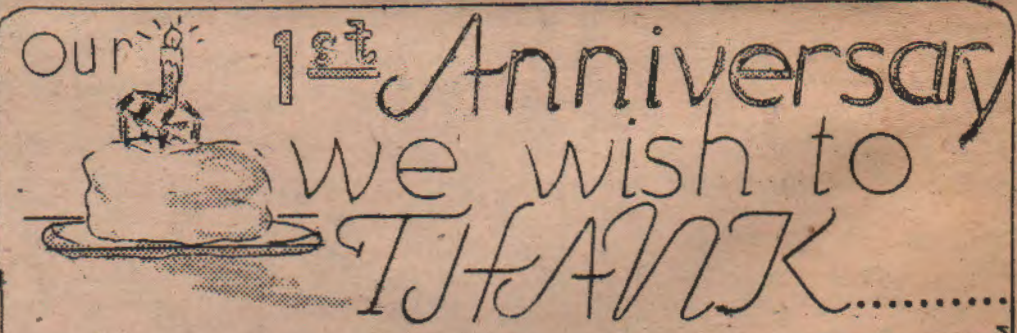 Our 1st Anniversary
we wish to
THANK..........